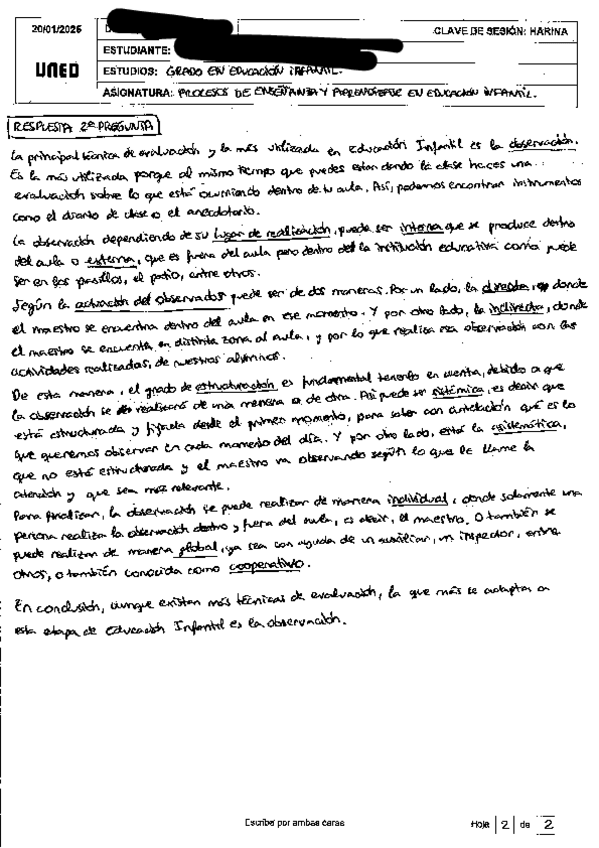 20/01/2026
CLAVE DE SESIÓN: HARINA
UNED
ESTUDIANTE:
ESTUDIOS: GRADO EN EDUCACIÓN INFANTIL.
ASIGNATURA: PROCESOS DE ENSEÑANZA Y APRENDIZAJE EN EDUCACIÓN INFANTIL.
RESPUESTA 2ª PREGUNTA
La principal técnica de evaluación y la más utilizada en Educación Infantil es la observación.
Es la más utilizada porque al mismo tiempo que puedes estar dando la clase haces una
evaluación sobre lo que está ocurriendo dentro de tu aula. Así, podemos encontrar instrumentos
como el diario de clase o el anecdotario.
La observación dependiendo de su lugar de realización, puede ser interna que se produce dentro
del aula o externa, que es fuera del aula pero dentro de la institución educativa como puede
ser en los pasillos, el patio, entre otros.
Según la actuación del observador puede ser de dos maneras. Por un lado, la directa, donde
el maestro se encuentra dentro del aula en ese momento. Y por otro lado, la indirecta, donde
el maestro se encuentra en distinta zona al aula, y por lo que realiza esa observación con las
actividades realizadas, de nuestros alumnos.
De esta manera, el grado de estructuración, es fundamental tenerlo en cuenta, debido a que
la observación se realizará de una manera o de otra. Así puede ser sistémica, es decir que
está estructurada y fijada desde el primer momento, para saber con antelación qué es lo
que queremos observar en cada momento del día. Y por otro lado, está la asistemática,
que no está estructurada y el maestro va observando según lo que le llame la
atención y que sea más relevante.
Para finalizar, la observación se puede realizar de manera individual, donde solamente una
persona realiza la observación dentro y fuera del aula, es decir, el maestro. O también se
puede realizar de manera global, ya sea con ayuda de un auxiliar, un inspector, entre
otros, o también conocida como cooperativo.
En conclusión, aunque existan más técnicas de evaluación, la que más se adapta a
esta etapa de Educación Infantil es la observación.
Escriba por ambas caras
Hoja 2 de 2